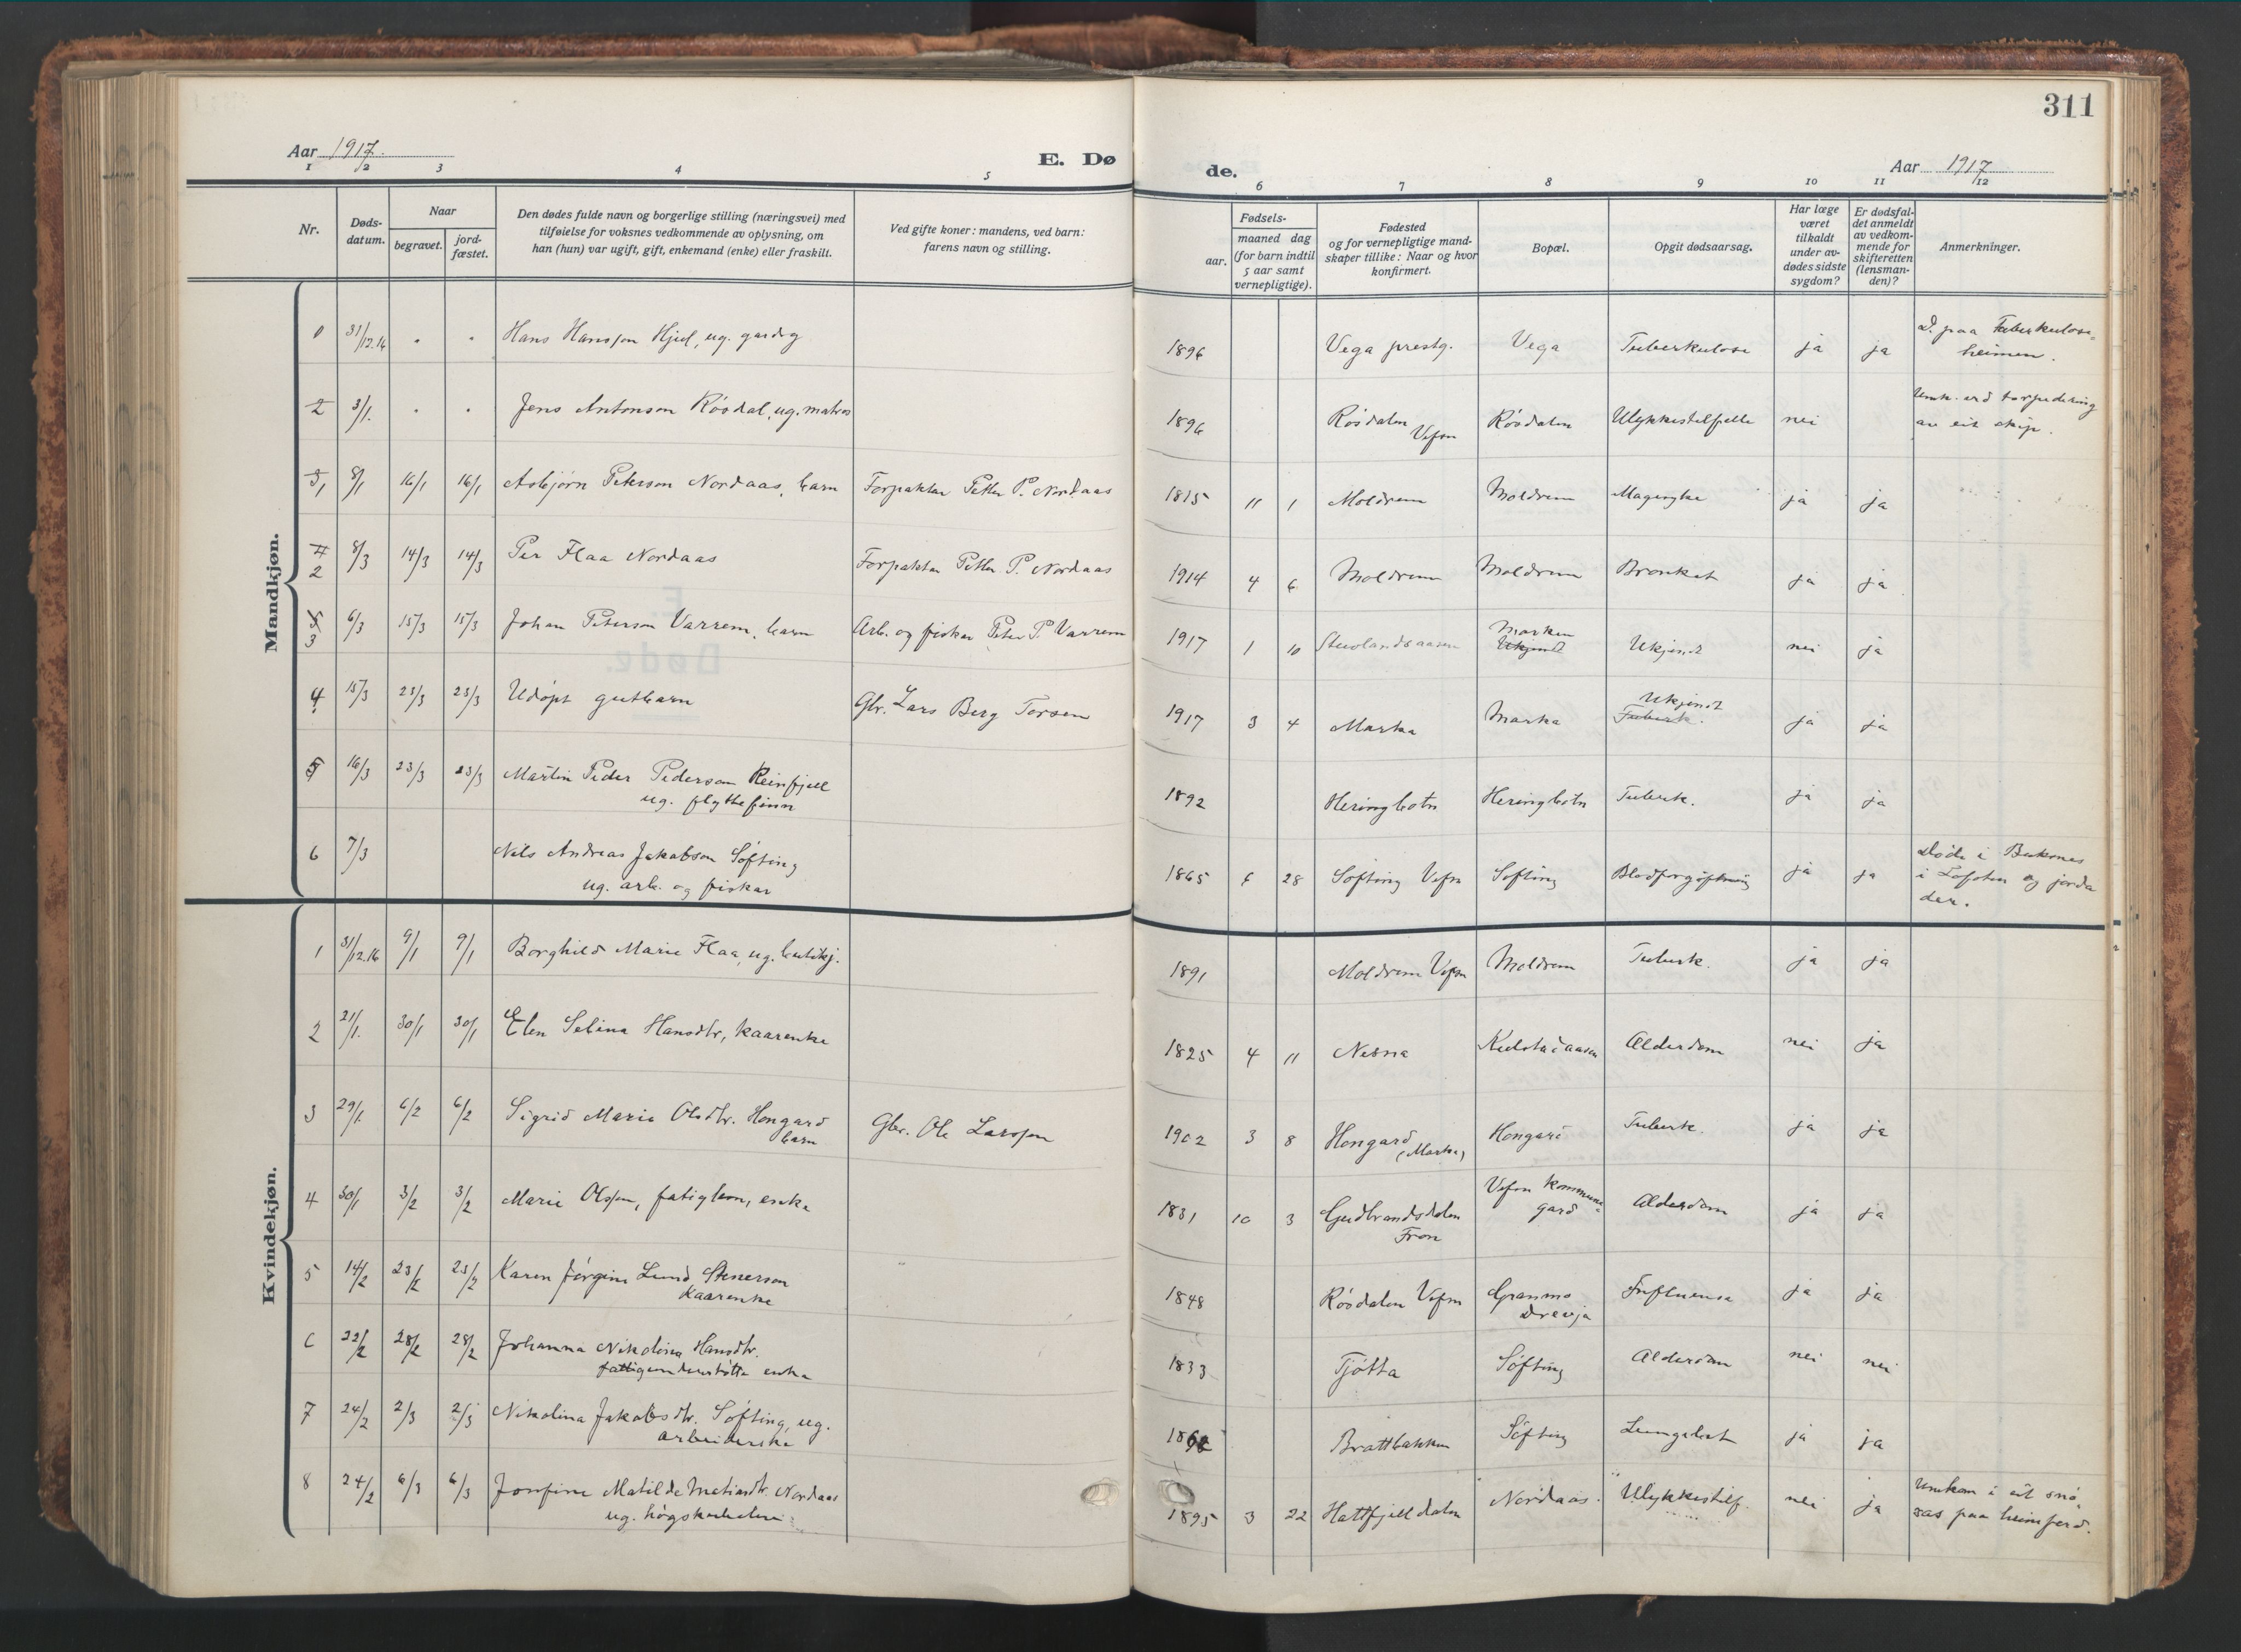 311
Aar 1917.
E. Dø
de.
Aar 1917
1 2 3 4 5 6 7 8 9 10 11 12
Nr.
Døds-
datum.
Naar
begravet.
jord-
fæstet.
Den dødes fulde navn og borgerlige stilling (næringsvei) med
tilføielse for voksnes vedkommende av oplysning, om
han (hun) var ugift, gift, enkemand (enke) eller fraskilt.
Ved gifte koner: mandens, ved barn:
farens navn og stilling.
Fødsels-
aar.
maaned dag
(for barn indtil
5 aar samt
vernepligtige).
Fødested
og for vernepligtige mand-
skaper tillike: Naar og hvor
konfirmert.
Bopæl.
Opgit dødsaarsag.
Har læge
været
tilkaldt
under av-
dødes sidste
sygdom?
Er dødsfal-
det anmeldt
av vedkom-
mende for
skifteretten
(lensman-
den)?
Anmerkninger.
Mandkjøn.
31/12.16 Hans Hansson Hjul, ug. gardg 1896 Vega prestg. Vega Tuberkulose ja ja D. paa Tuberkulose-
heimen.
2 3/1. Jens Antonson Røsdal, ug. matros 1896 Røsdalen Vefsn Røsdalen Ulykkestilfelle nei Umk. ved torpedering
av eit skip.
1 8/1 16/1 16/1 Asbjørn Peterson Nordaas, barn Forpaktar Petter P. Nordaas 1815 11 1 Moldrem Moldrem Magesyke ja ja
4 2 8/3 14/3 14/3 Per Flaa Nordaas Forpaktar Petter P. Nordaas 1914 4 6 Moldrem Moldrem Bronkit ja ja
5 3 6/3 15/3 15/3 Johan Peterson Varrem, barn Arb. og fiskar Peter P. Varrem 1917 1 10 Marken
Ukjendt Ukjendt nei ja
4 15/3 23/3 23/3 Udøpt gutbarn Gbr. Lars Berg Torsen 1917 3 4 Marka Marka Ukjendt
Tuberk. ja ja
5 16/3 23/3 23/3 Martin Peder Pederson Reinfjell
ug. flyttefinn 1892 Heringbotn Heringbotn Tuberk. ja ja
6 7/3 Nils Andreas Jakobson Søfting
ug. arb. og fiskar 1865 28 Søfting Vefsn Søfting Blodforgiftning ja ja Døde i Buksnes
i Lofoten og jorda
der.
Kvindekjøn.
1 31/12.16 9/1 9/1 Borghild Marie Flaa, ug. butikj. 1891 Moldrem Vefsn Moldrem Tuberk. ja ja
2 21/1. 30/1 30/1 Elen Selina Hansdtr, kaarenke 1825 4 11 Nesna Kulstadaasen Alderdom nei ja
3 29/1. 6/2 6/2 Sigrid Marie Olsdtr. Hongard
barn Gbr. Ole Larssen 1902 3 8 Hongard
(Marka) Hongard Tuberk. ja ja
4 30/1 3/2 3/2 Marie Olsen, fatiglem, enke 1831 10 3 Gudbrandsdalen
Fron Vefsn kommune-
gard Alderdom ja ja
5 14/2 23/2 23/2 Karen Jørgine Lund Stenerson
kaarenke 1848 Røsdalen Vefsn Granmo
Drevja Influensa ja ja
6 22/2 28/2 28/2 Johanna Nikolina Hansdtr.
fattigunderstøtta enka 1833 Tjøtta Søfting Alderdom nei nei
7 24/2 2/3 2/3 Nikolina Jakobsdtr. Søfting, ug.
arbeiderske Brattbakken Søfting Lungebet ja ja
8 24/2 6/3 6/3 Josefine Matilde Matiasdtr. Nordaas
ug. 1895 3 22 Hattfjelldalen Nordaas. Ulykkestilf. nei ja Umkom i eit snø-
ras paa heimferd.